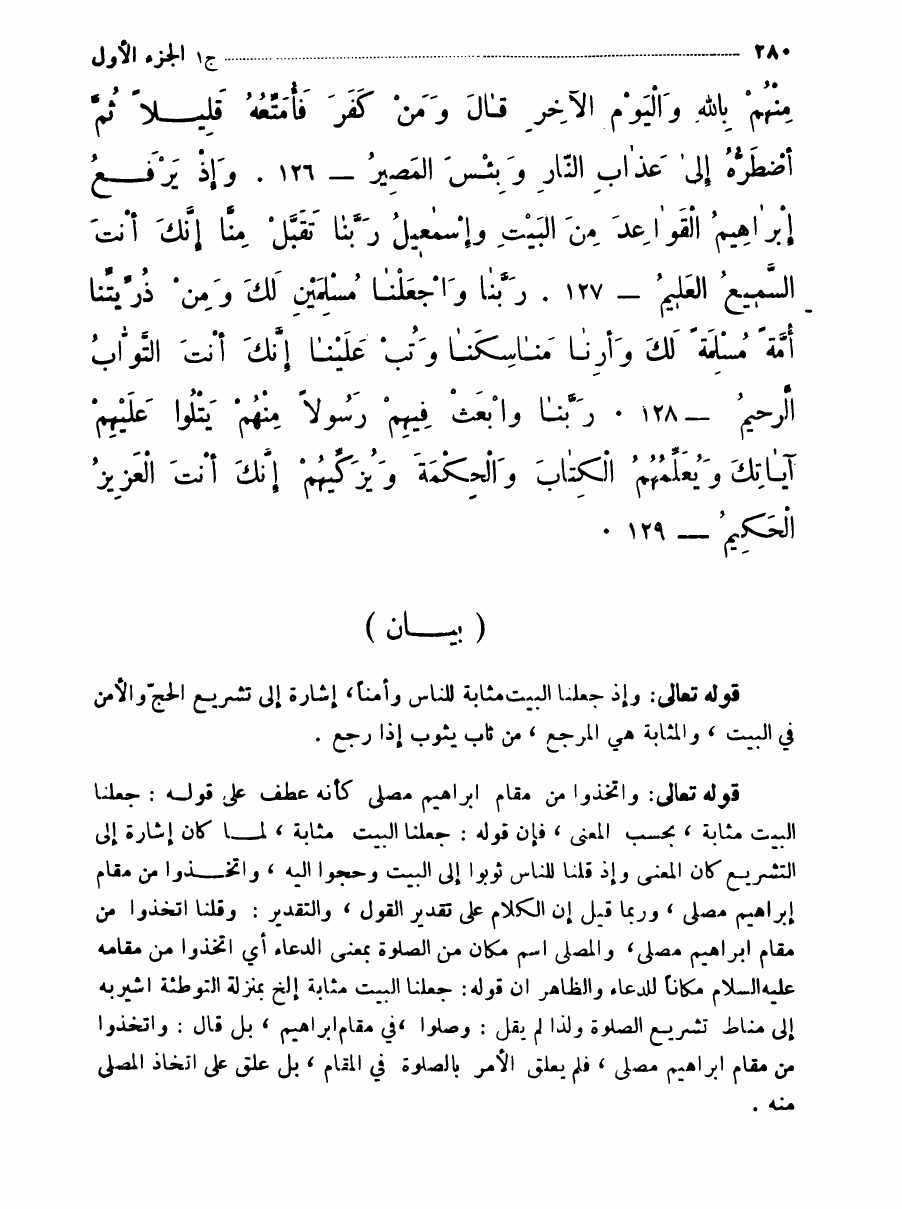 ٢٨٠ ........ ج١ الجزء الأول
مِنْهُمْ بِاللهِ وَالْيَوْمِ الآخِرِ قَالَ وَمَنْ كَفَرَ فَأُمَتِّعُهُ قَلِيلاً ثُمَّ
أَضْطَرُّهُ إِلىٰ عَذَابِ النّارِ وَبِئْسَ المَصِيرُ — ١٢٦ . وَإِذْ يَرْفَعُ
إِبْرَاهِيمُ الْقَوَاعِدَ مِنَ البَيْتِ وإِسْمٰعِيلُ رَبَّنٰا تَقَبَّلْ مِنَّا إِنَّكَ أنْتَ
السَّمِيعُ العَلِيمُ — ١٢٧ . رَبَّنٰا وَاجْعَلْنٰا مُسْلِمَيْنِ لَكَ وَمِنْ ذُرِّيَّتِنٰا
أُمَّةً مُسْلِمَةً لَكَ وَأَرِنٰا مَنٰاسِكَنٰا وَتُبْ عَلَيْنٰا إِنَّكَ أنْتَ التَّوَّابُ
الَّرحِيمُ — ١٢٨ . رَبَّنٰا وابْعَثْ فِيهِمْ رَسُولاً مِنْهُمْ يَتْلُوا عَلَيْهِمْ
آيٰاتِكَ وَيُعَلِّمُهُمُ الْكِتٰابَ وَالْحِكْمَةَ وَيُزَكِّيهُمْ إِنَّكَ أنْتَ الْعَزِيزُ
الْحَكِيمُ — ١٢٩ .
( بيــان )
قوله تعالى: وإذ جعلنا البيت مثابة للناس وأمناً، إشارة إلى تشريع الحجّ والأمن
في البيت ، والمثابة هي المرجع ، من ثاب يثوب إذا رجع .
قوله تعالى: واتخذوا من مقام ابراهيم مصلى كأنه عطف على قوله : جعلنا
البيت مثابة ، بحسب المعنى ، فإن قوله : جعلنا البيت مثابة ، لمــا كان إشارة إلى
التشريع كان المعنى وإذ قلنا للناس ثوبوا إلى البيت وحجوا اليه ، واتخــذوا من مقام
إبراهيم مصلى ، وربما قيل إن الكلام على تقدير القول ، والتقدير : وقلنا اتخذوا من
مقام ابراهيم مصلى، والمصلى اسم مكان من الصلوة بمعنى الدعاء أي اتخذوا من مقامه
عليه السلام مكاناً للدعاء والظاهر ان قوله: جعلنا البيت مثابة إلخ بمنزلة التوطئة اشير به
إلى مناط تشريع الصلوة ولذا لم يقل : وصلوا ،في مقام ابراهيم ، بل قال : واتخذوا
من مقام ابراهيم مصلى ، فلم يعلق الأمر بالصلوة في المقام ، بل علق على اتخاذ المصلى
منه .